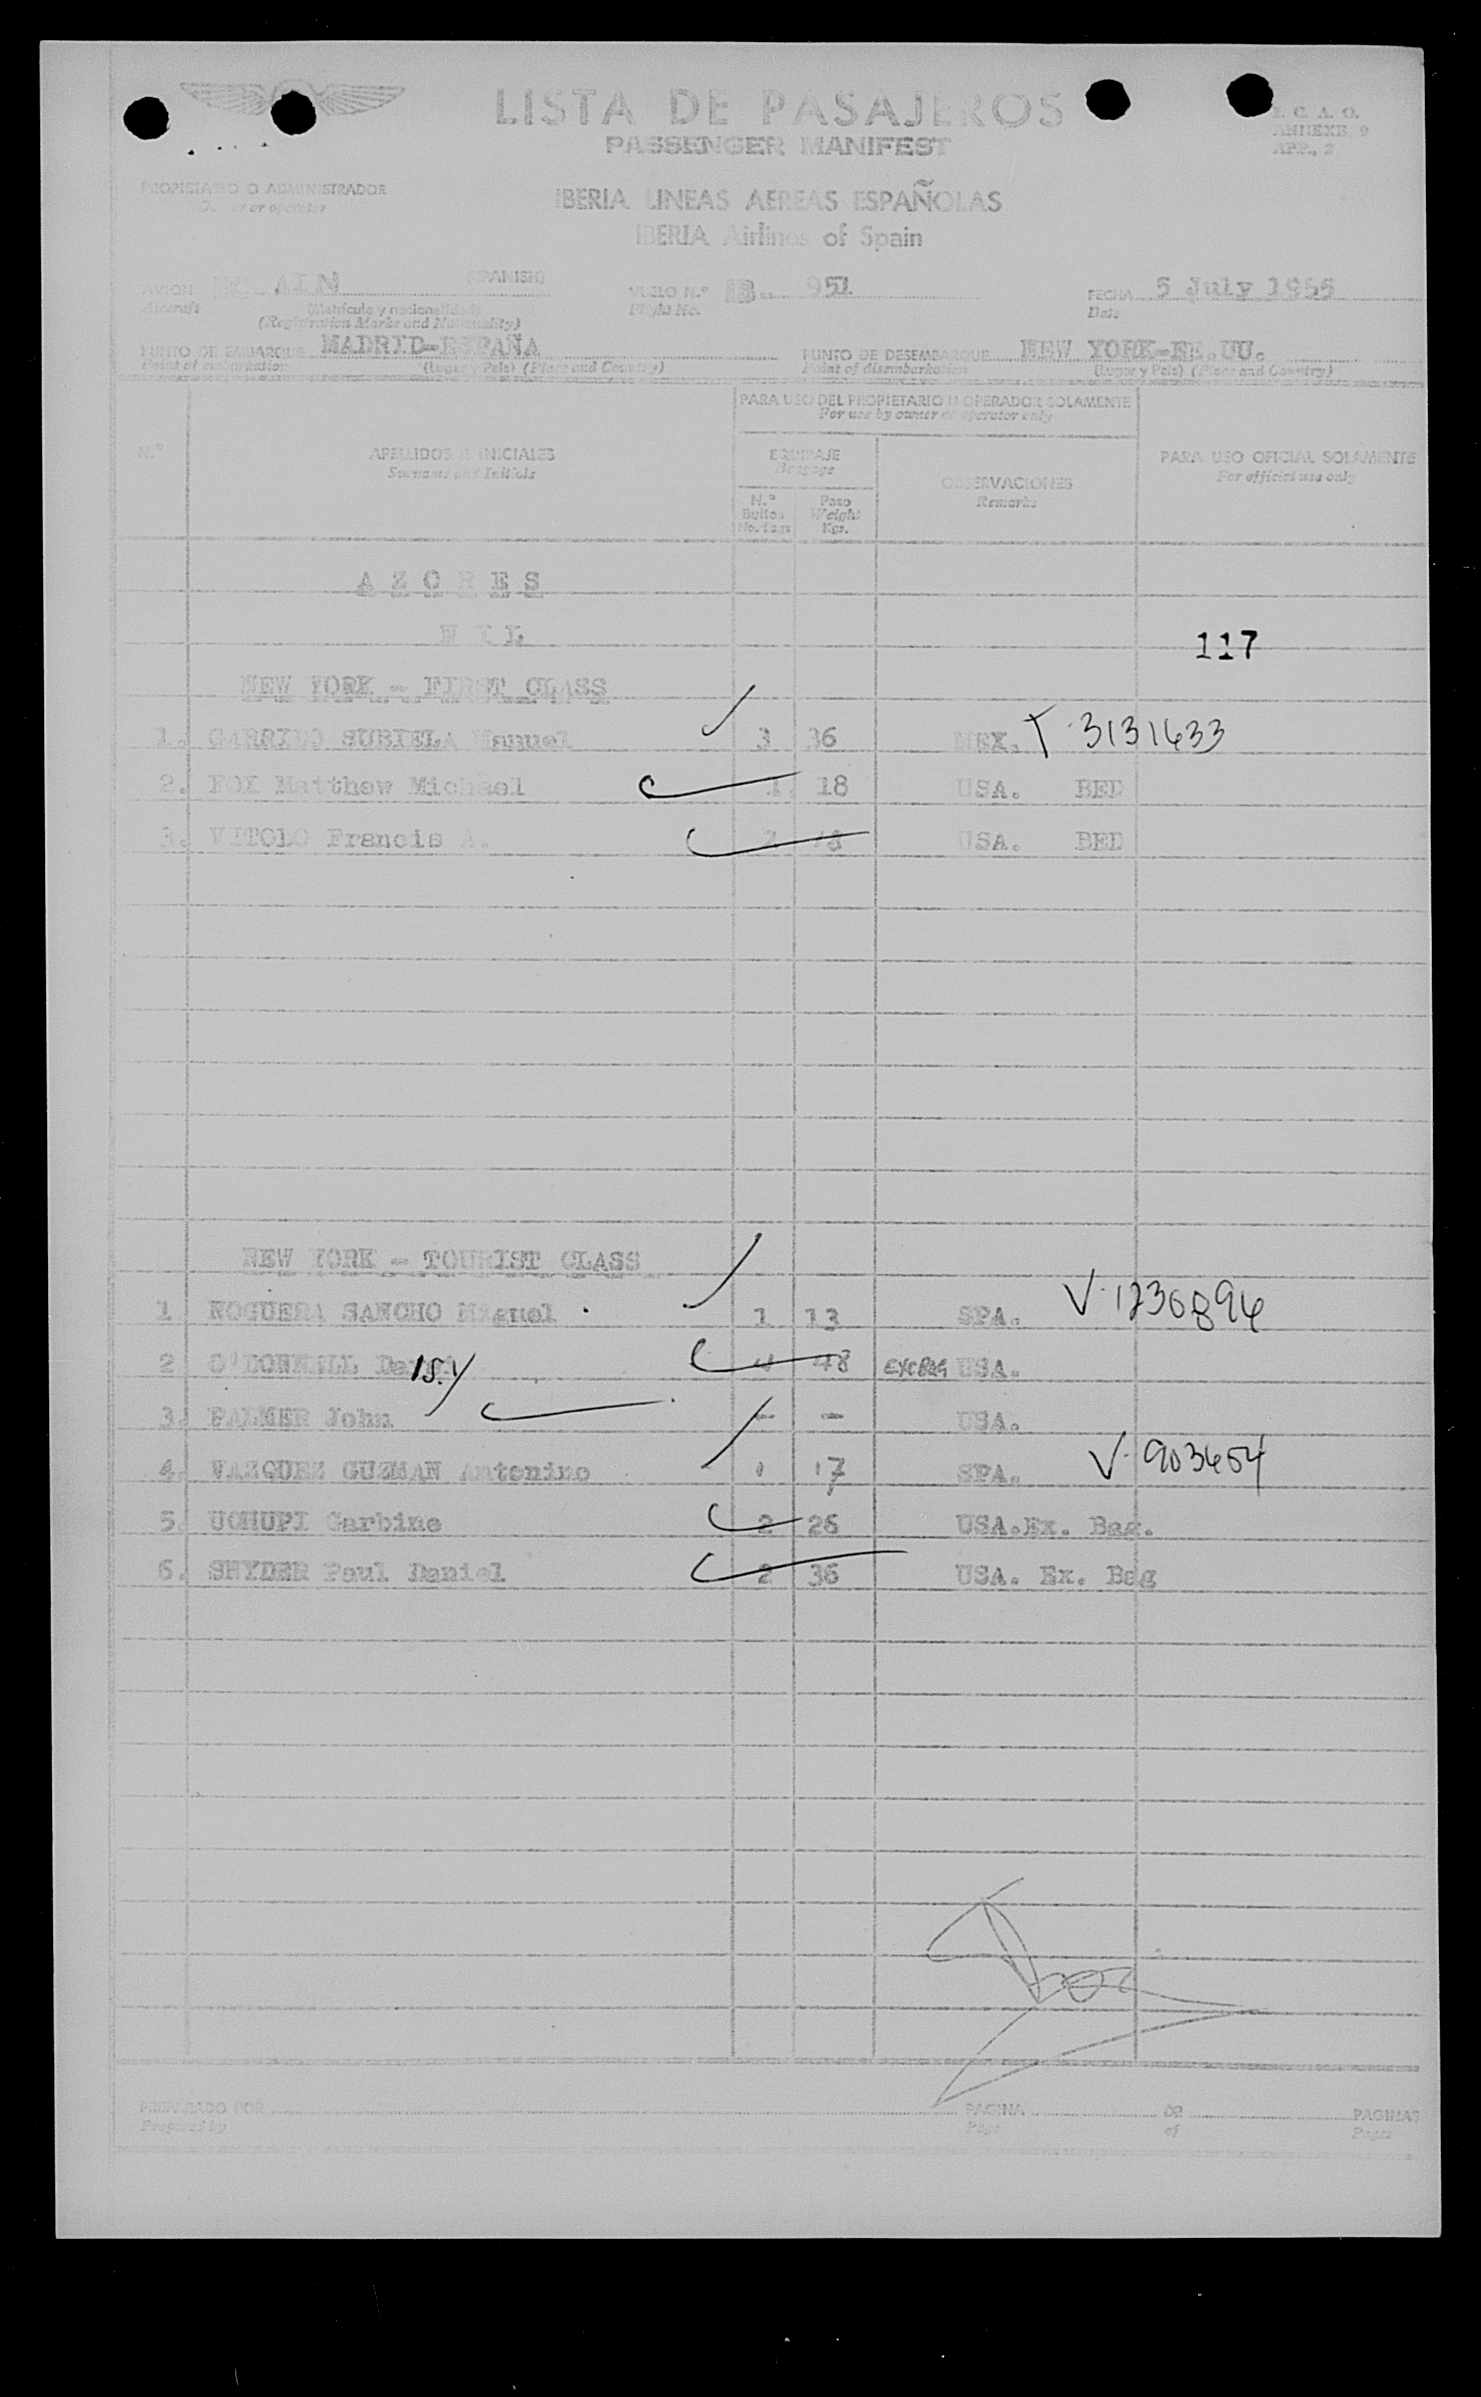 LISTA DE PASAJEROS
PASSENGER MANIFEST
I. C. A. O.
ANNEXE 9
APP., 2
PROPIETARIO O ADMINISTRADOR
Owner or operator
IBERIA LINEAS AEREAS ESPAÑOLAS
IBERIA Airlines of Spain
AVION AIN (SPANISH) VUELO N.º IB. 951 FECHA 5 July 1955
Aircraft (Matrícula y nacionalidad) Flight No. Date
(Registration Marks and Nationality)
PUNTO DE EMBARQUE MADRID-ESPAÑA PUNTO DE DESEMBARQUE NEW YORK-EE.UU.
Point of embarkation (Lugar y País) (Place and Country) Point of disembarkation (Lugar y País) (Place and Country)
PARA USO DEL PROPIETARIO U OPERADOR SOLAMENTE
For use by owner or operator only
N.º APELLIDOS E INICIALES EQUIPAJE OBSERVACIONES PARA USO OFICIAL SOLAMENTE
Surname and Initials Baggage Remarks For official use only
N.º Bultos Peso
Weight
Kgs.
AZORES
NIL
117
NEW YORK - FIRST CLASS
1. GARRIDO SUBIELA Manuel 3 36 MEX. T 3131633
2. FOX Matthew Michael 1 18 USA. BED
3. VITOLO Francis A. 2 18 USA. BED
NEW YORK - TOURIST CLASS
1 NOGUERA SANCHO Miguel 1 13 SPA. V-1236894
2 O'DONNELL 48 EXCBAG USA.
3. PALMER John - - USA.
4. VAZQUEZ GUZMAN Antonino 1 17 SPA. V-903654
5. UCHUPI Garbine 2 26 USA.Ex. Bag.
6. SNYDER Paul Daniel 2 36 USA. Ex. Bag
PREPARADO POR PAGINA DE PAGINAS
Prepared by Page of Pages